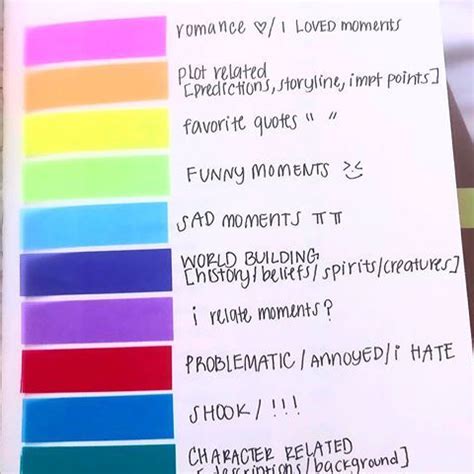 romance ♡/ I LOVED moments
plot related
[predictions, storyline, impt points]
favorite quotes " "
FUNNY MOMENTS >:<
SAD MOMENTS ㅠㅠ
WORLD BUILDING
[history/beliefs/spirits/creatures]
i relate moments?
PROBLEMATIC/annoyed/i HATE
SHOOK/!!!
CHARACTER RELATED
[descriptions/background]